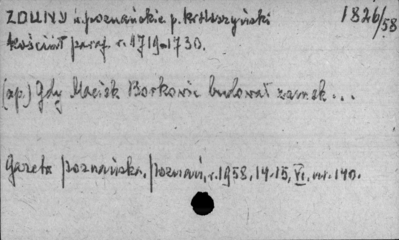 ZDUNY w.poznańskie p.krotoszyński 1826/58
kościół paraf. r.1719-1730.
(ap.) Gdy Maciek Borkowic budował zamek...
Gazeta Poznańska, Poznań, r.1958, 14-15, VI, nr. 140.